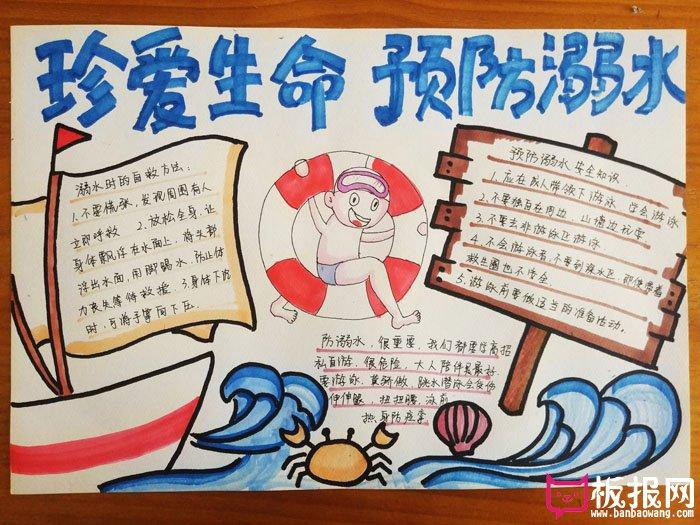 珍爱生命 预防溺水
溺水时的自救方法:
1.不要慌张,发现周围有人
立即呼救 2.放松全身,让
身体飘浮在水面上,将头部
浮出水面,用脚踢水,防止体
力丧失等待救援 3.身体下沉
时,可将手掌向下压
预防溺水安全知识
1.应在成人带领下游泳 学会游泳
2.不要独自在 周边、山塘边玩耍
3.不要去非游泳区游泳
4.不会游泳者,不要到深水区,即使带着
救生圈也不安全
5.游泳前要做适当的准备活动。
防溺水,很重要,我们都要 高招
私自游,很危险,大人陪伴是最好
要游泳,莫 做,跳水潜泳会受伤
伸伸腿,扭扭腰,泳前
热身防痉挛
板报网
www.banbaowang.com